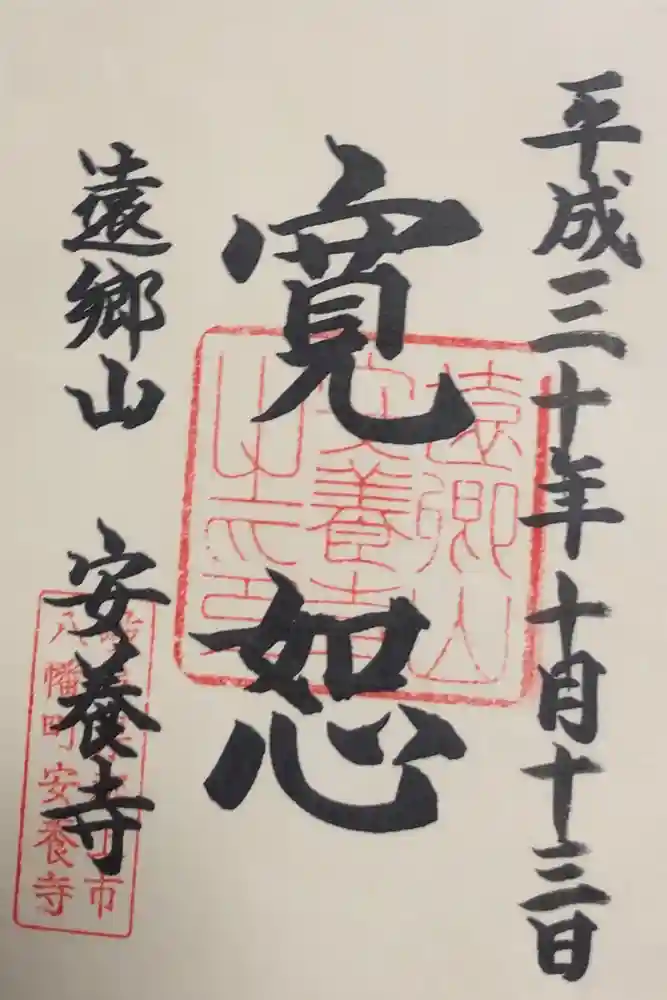 平成三十年十月十三日
寛恕
遠郷山 安養寺
遠郷山
安養寺
市
八幡町安養寺